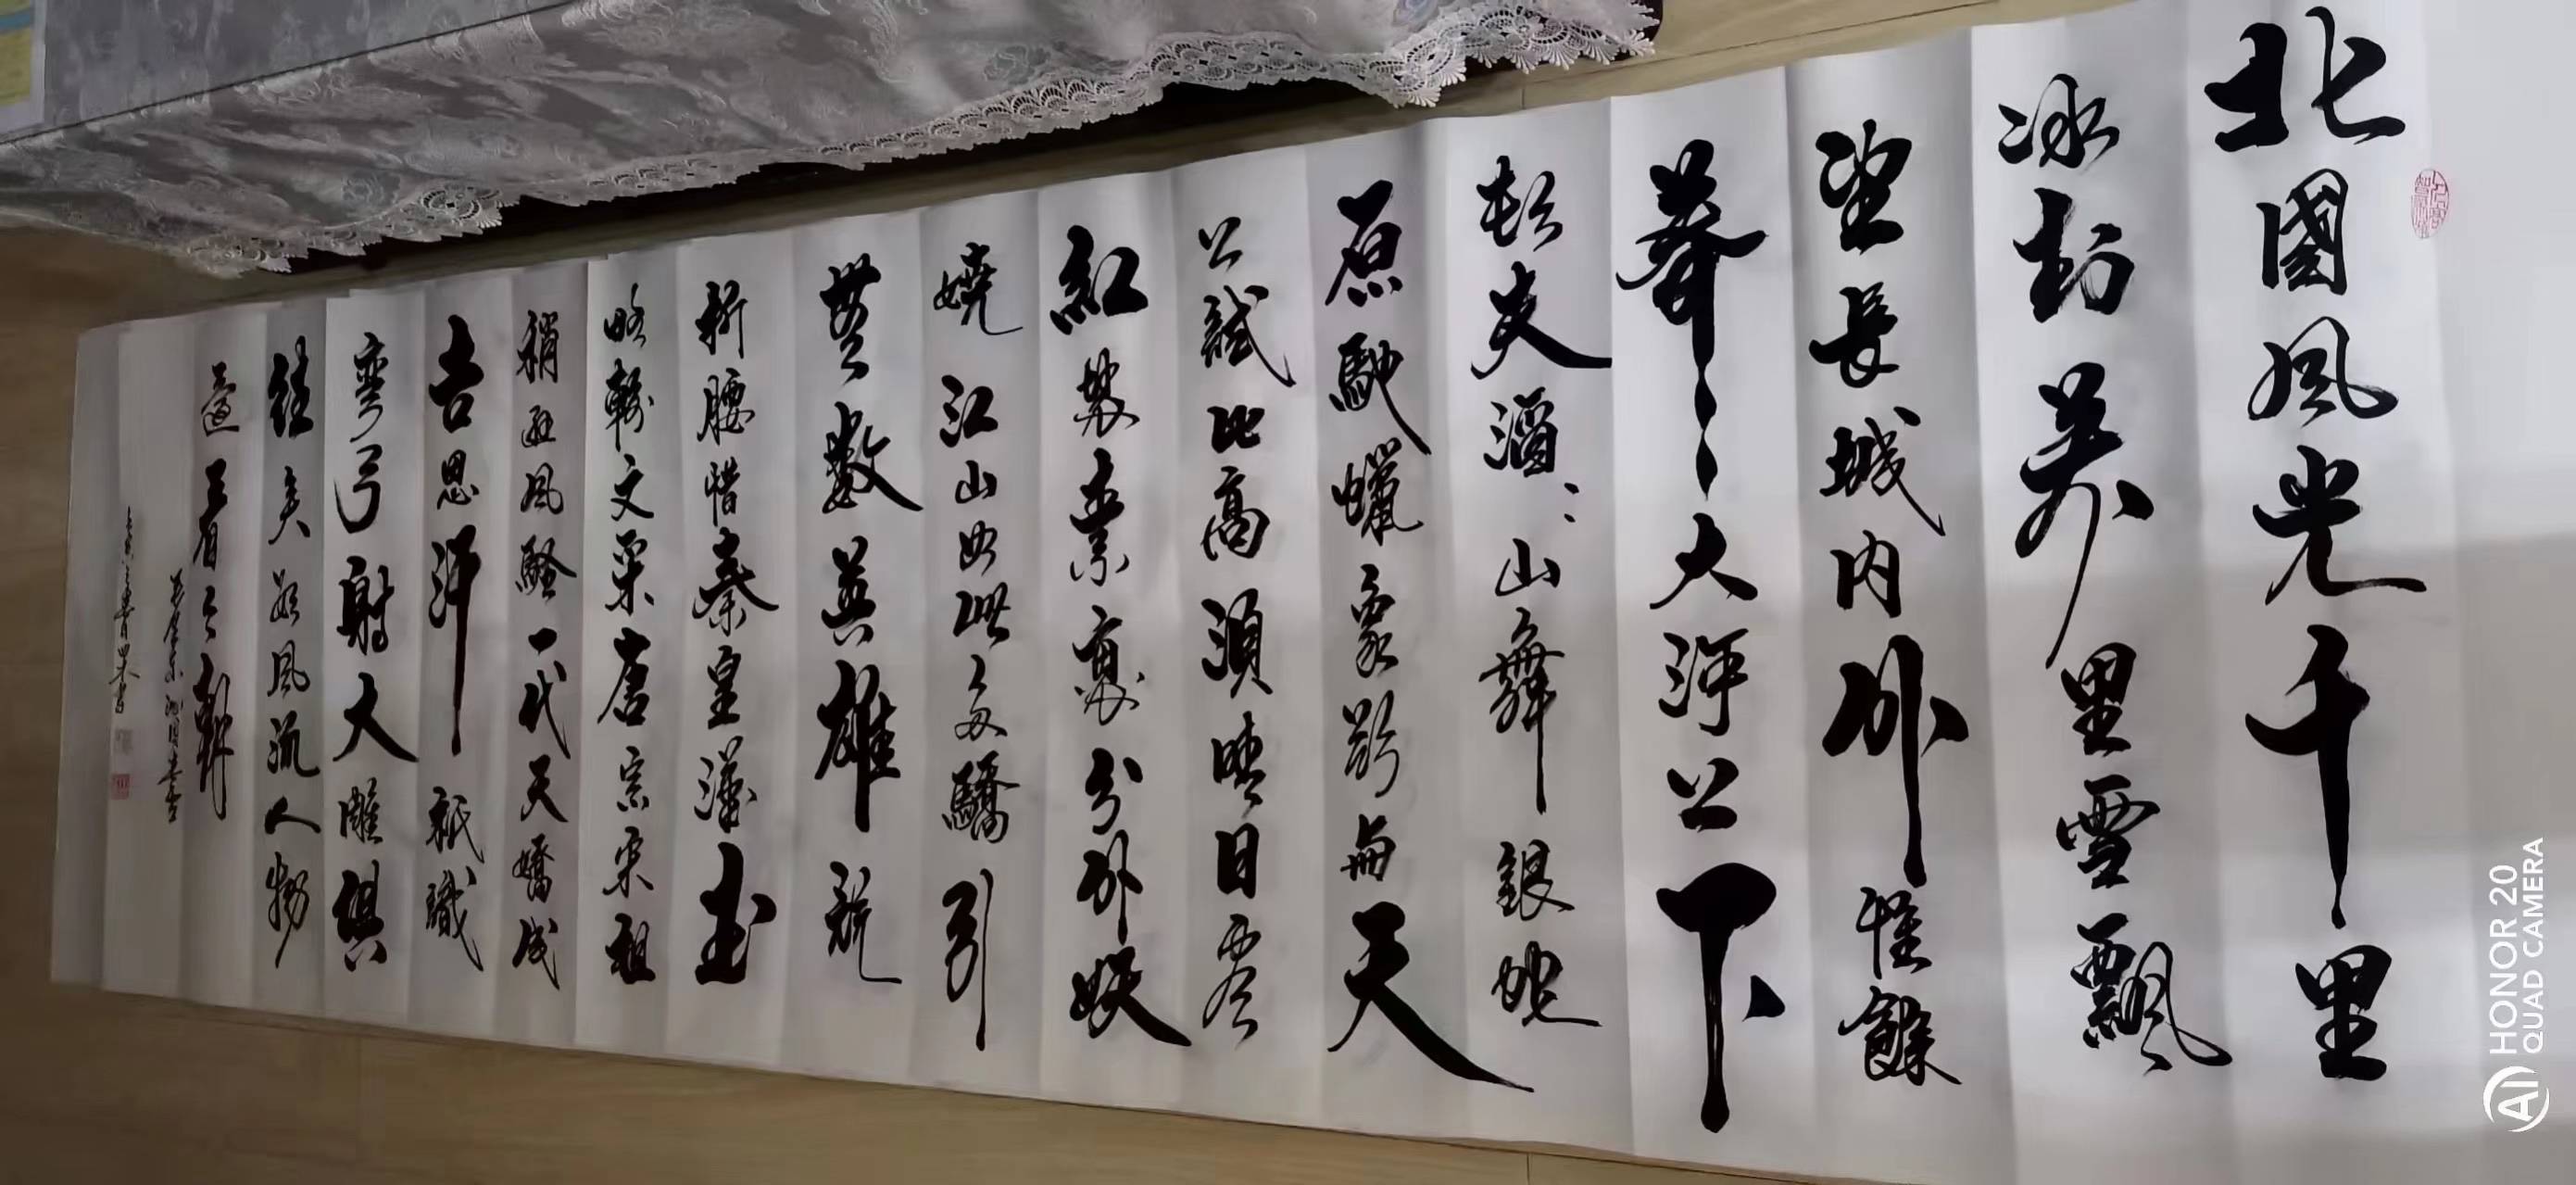 北國風光千里
冰封萬里雪飄
望長城内外惟餘
莽〻大河上下
頓失滔〻山舞銀蛇
原馳蠟象欲與天
公試比高須晴日看
紅裝素裹分外妖
嬈江山如此多驕引
無數英雄競
折腰惜秦皇漢武
略輸文采唐宗宋祖
稍遜風騷一代天嬌成
吉思汗祇識
彎弓射大雕俱
往矣數風流人物
還看今朝
毛澤東沁園春雪
HONOR 20
QUAD CAMERA
AI